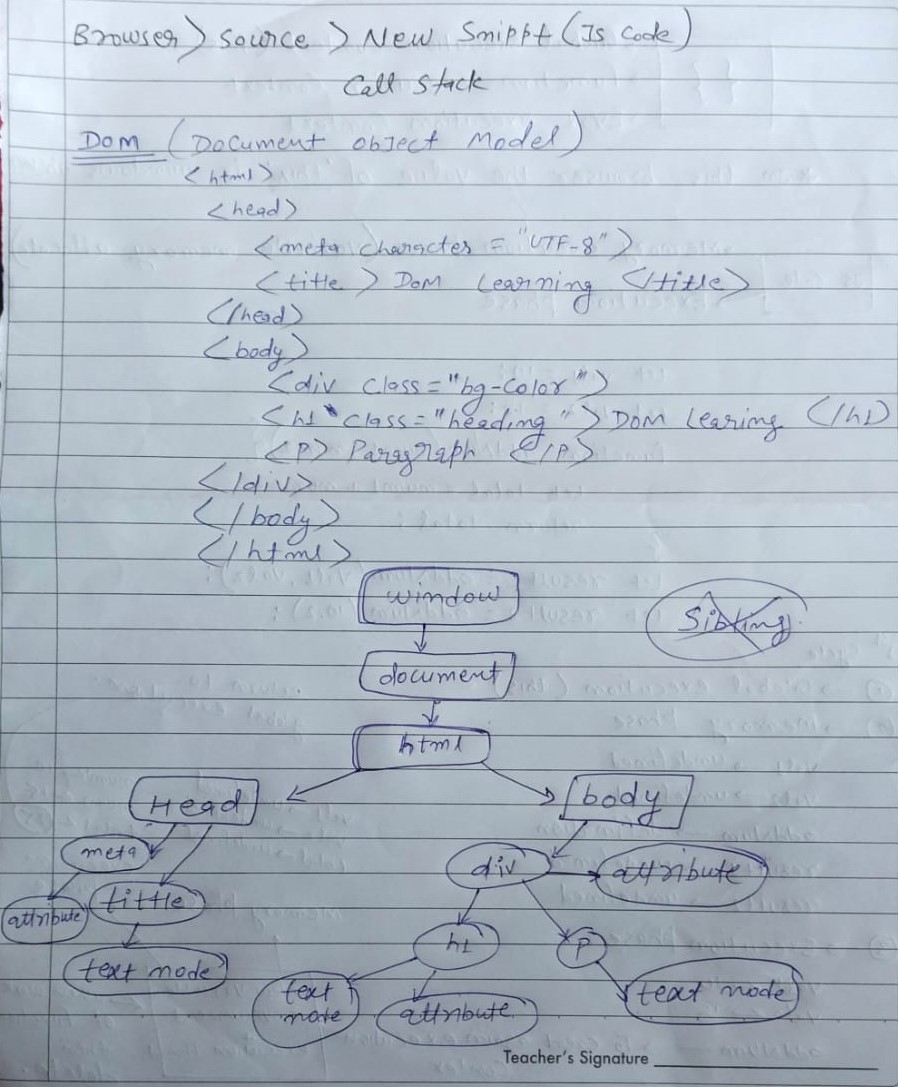 Browser > Source > New Snippt (Js Code)
Call Stack
Dom (Document object Model)
<html>
<head>
<meta character = "UTF-8">
<title> Dom Learning </title>
</head>
<body>
<div class="bg-color">
<h1 class="heading"> DOM Learing </h1>
<P> Paragraph </P>
</div>
</body>
</html>
window
Sibling
document
html
Head
body
meta
div
attribute
attribute
tittle
h1
P
text node
text
note
attribute
text node
Teacher's Signature